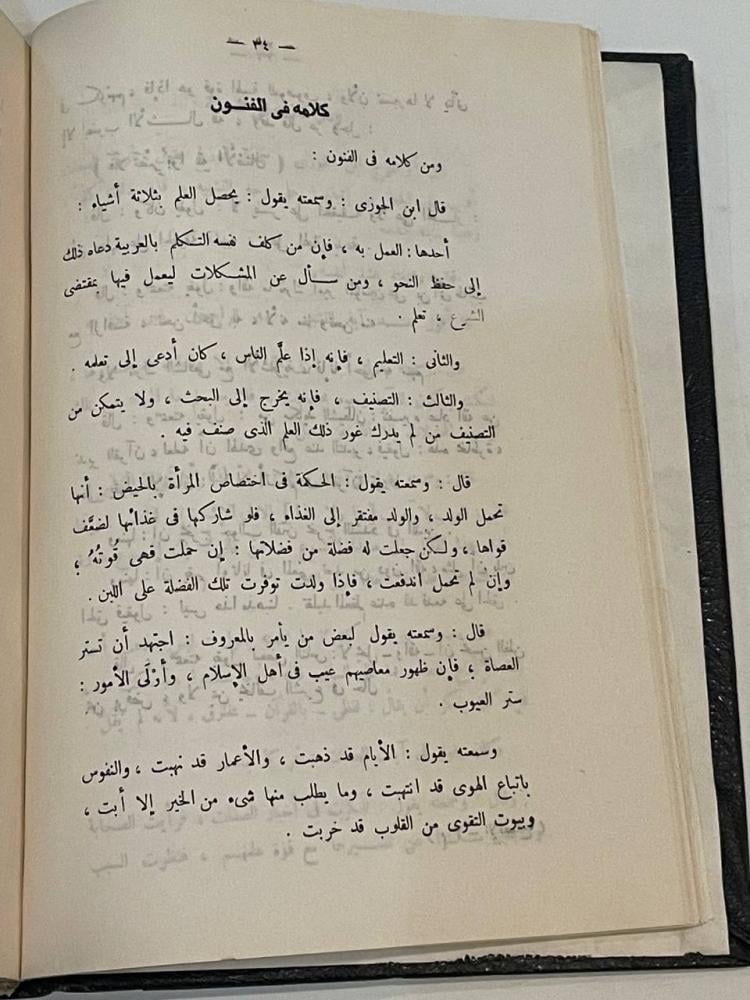 — ٣٤ —
كلامه فى الفنـــون
ومن كلامه فى الفنون :
قال ابن الجوزى : وسمعته يقول : يحصل العلم بثلاثة أشياء :
أحدها : العمل به ، فإن من كلف نفسه التـكلم بالعربية دعاه ذلك
إلى حفظ النحو ، ومن ســأل عن المشـكلات ليعمل فيها بمقتضى
الشرع ، تعلم .
والثانى : التعليم ، فإنه إذا علَّم الناس ، كان أدعى إلى تعلمه .
والثالث : التصنيف ، فإنه يخرج إلى البحث ، ولا يتمكن من
التصنيف من لم يدرك غور ذلك العلم الذى صنف فيه .
قال : وسمعته يقول : الحكمة فى اختصاص المرأة بالحيض : أنها
تحمل الولد ، والولد مفتقر إلى الغذاء ، فلو شاركها فى غذائها لضعَّف
قواها ، ولـكن جعلت له فضلة من فضلاتها : إن حملت فهى قُوتُهُ ،
وإن لم تحمل اندفعت ، فإذا ولدت توفرت تلك الفضلة على اللبن .
قال : وسمعته يقول لبعض من يأمر بالمعروف : اجتهد أن تستر
العصاة ، فإن ظهور معاصيهم عيب فى أهل الإسلام ، وأوْلَى الأمور :
ستر العيوب .
وسمعته يقول : الأيام قد ذهبت ، والأعمار قد نهبت ، والنفوس
باتباع الهوى قد انتهبت ، وما يطلب منها شىء من الخير إلا أبت ،
وبيوت التقوى من القلوب قد خربت .